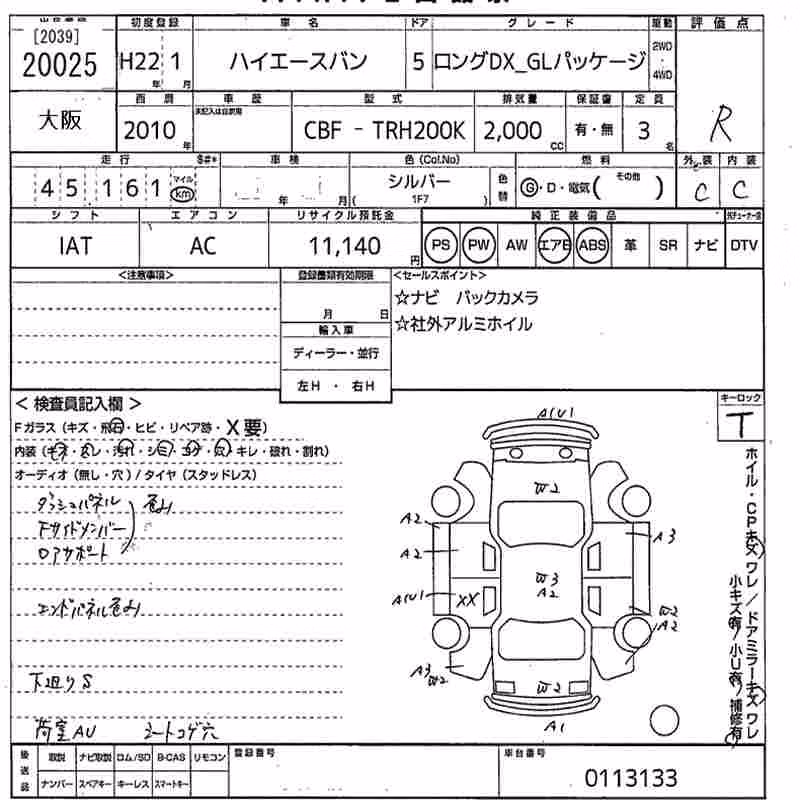 初度登録 車名 ドア グレード 駆動 評価点
[2039]
20025 H22年 1月 ハイエースバン 5 ロングDX_GLパッケージ 2WD・4WD
大阪 西暦 車歴 型式 排気量 保証書 定員 R
未記入は自家用
2010年 CBF - TRH200K 2,000cc 有・無 3名
走行 $#* 車検 色(Col.No) 色替 燃料 外装 内装
45161 マイル km 年 月 シルバー (1F7) Ⓖ・D・電気( その他 ) C C
シフト エアコン リサイクル預託金 純正装備品
IAT AC 11,140円 PS PW AW エアB ABS 革 SR ナビ DTV
<注意事項> 登録書類有効期限 <セールスポイント>
月 日 ☆ナビ バックカメラ
輸入車 ☆社外アルミホイル
ディーラー・並行
左H ・ 右H
<検査員記入欄> キーロック
Fガラス (キズ・飛石・ヒビ・リペア跡・X要) T
内装 (キズ・スレ・汚れ・シミ・コゲ・穴・キレ・破れ・割れ)
オーディオ (無し・穴) / タイヤ (スタッドレス)
ダッシュパネル
Fサイドメンバー 歪み
ロアサポート
エンドパネル歪み
下廻りS
荷室AU シートコゲ穴
A(U)
W2
A2
A2
A3
W3
A2
A(U) XX
W2
A2
A3
W2
W2
A1
ホイル・CPキズ ワレ / ドアミラーキズ ワレ
小キズ有 / 小U有 / 補修有
後送品 取説 ナビ取説 ロム/SD B-CAS リモコン 登録番号 車台番号
ナンバー スペアキー キーレス スマートキー 0113133